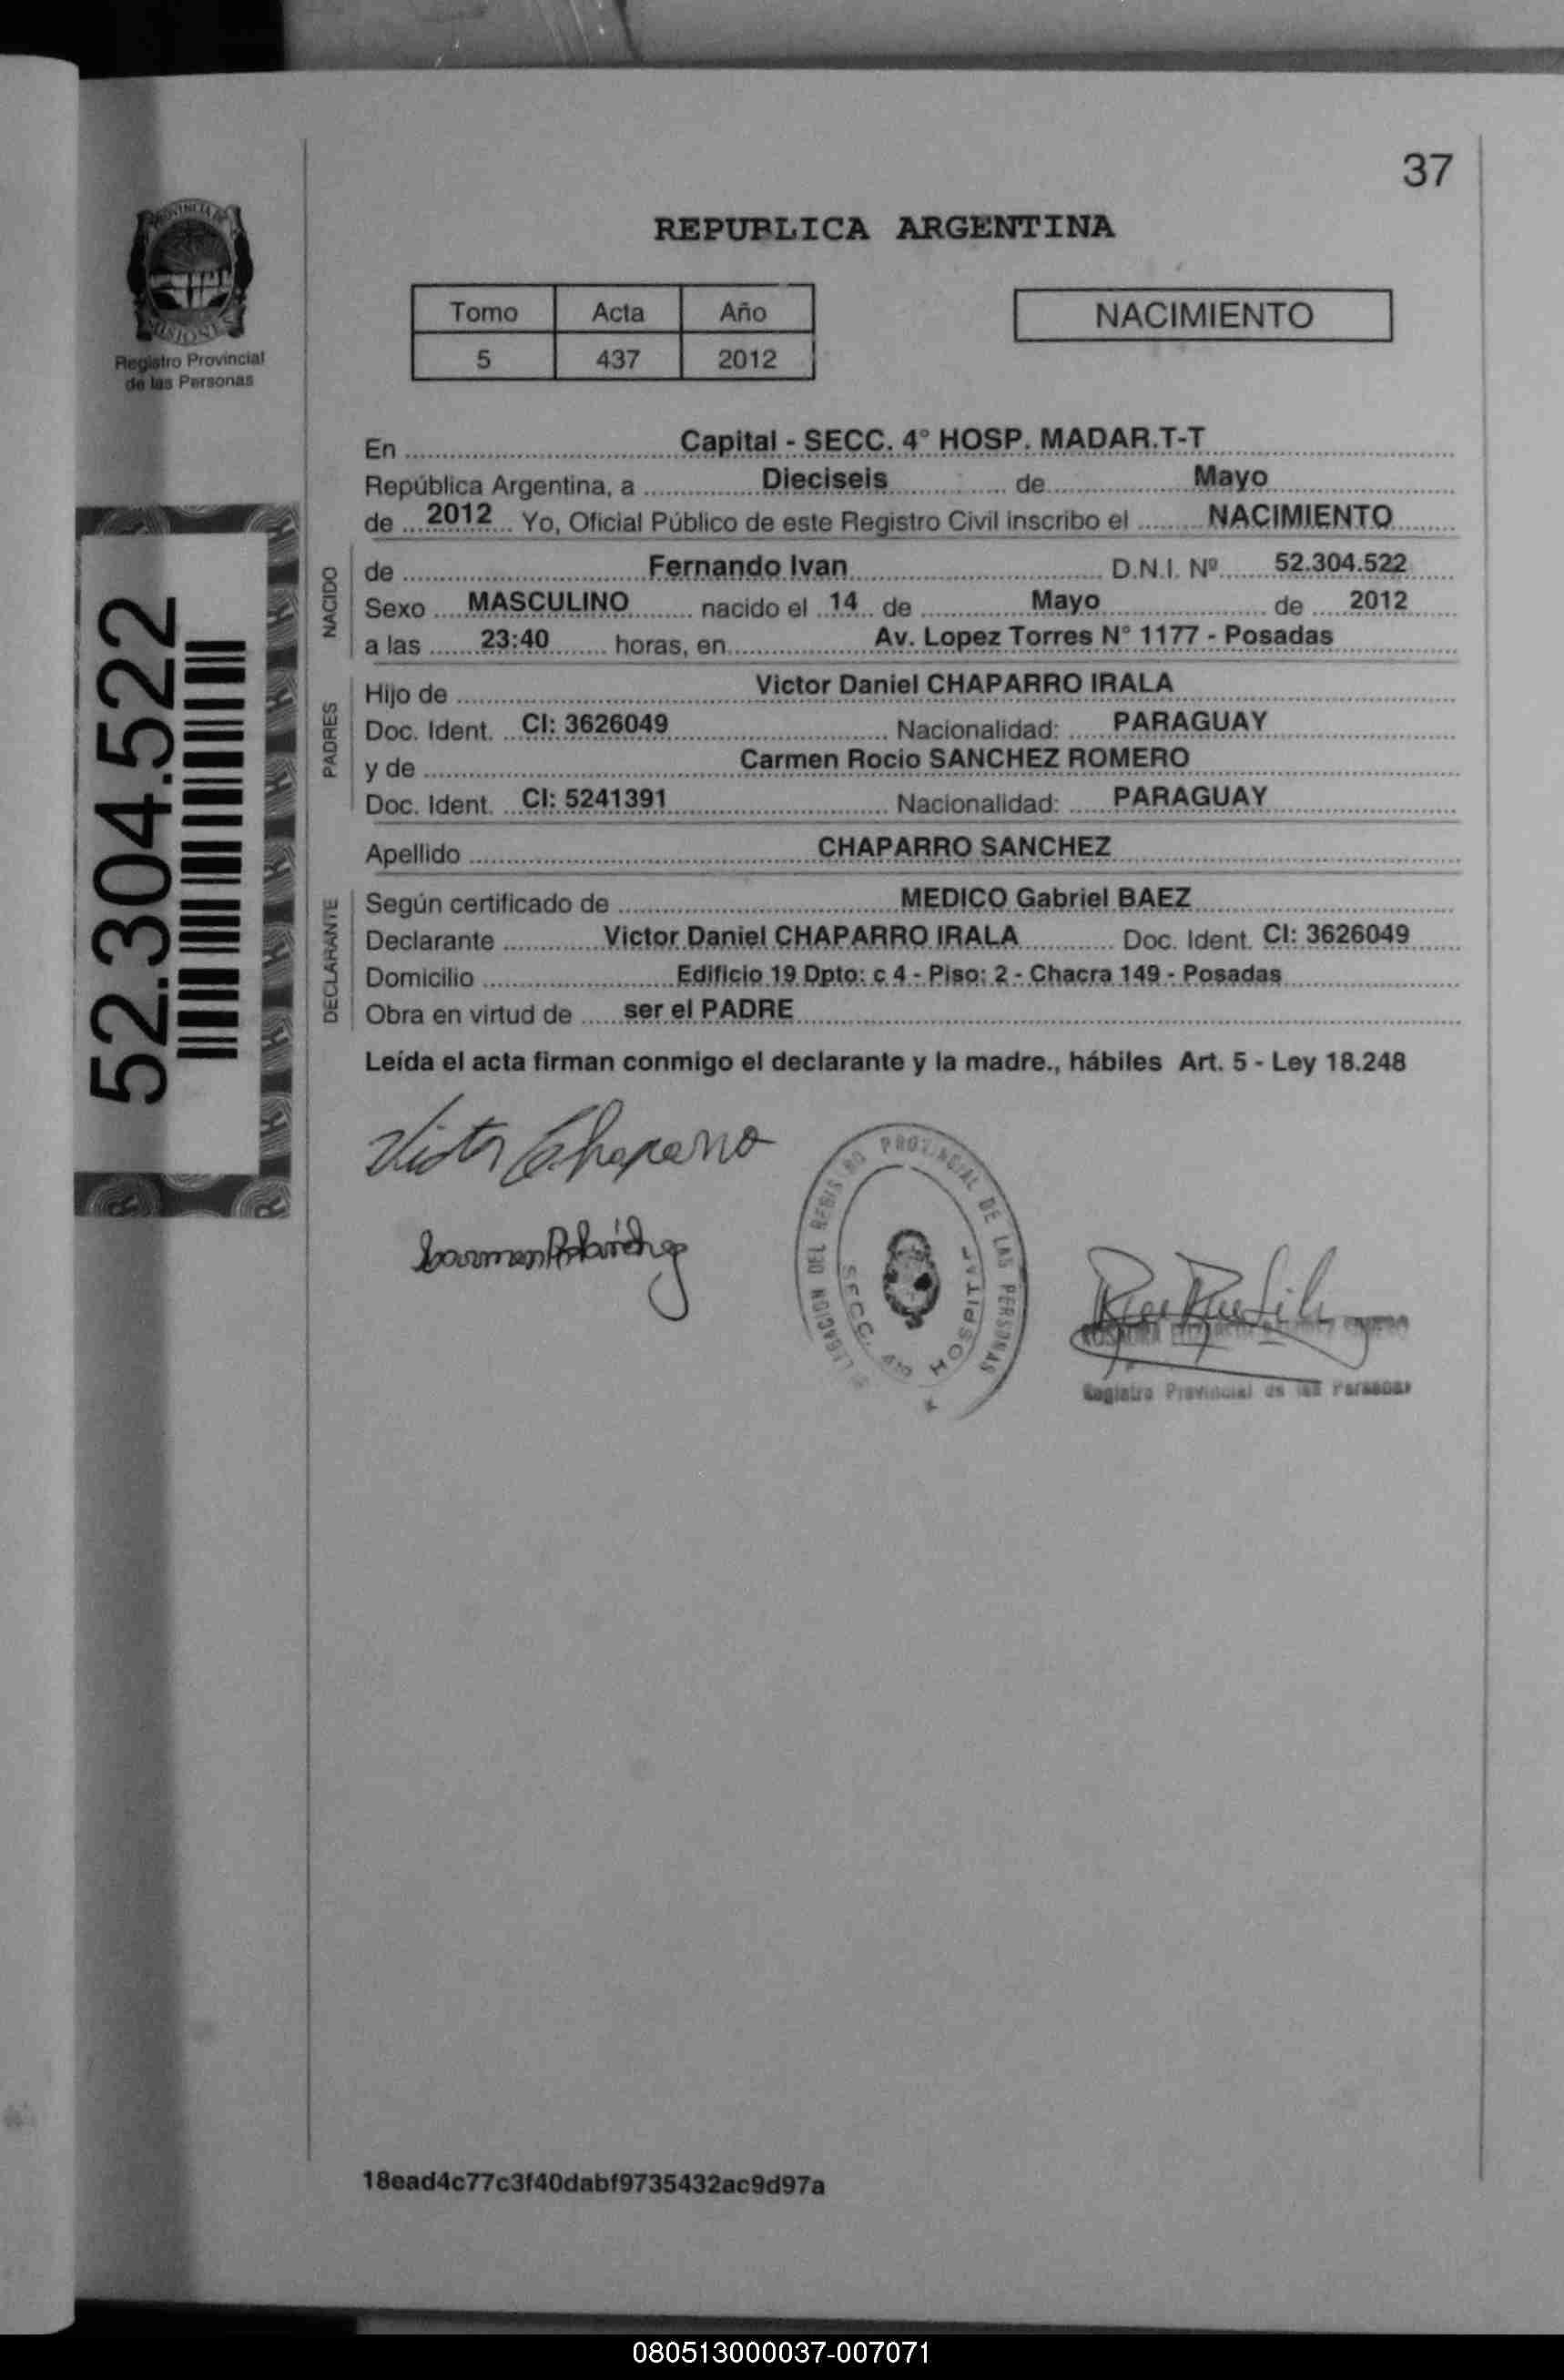 37
PROVINCIA DE
MISIONES
Registro Provincial
de las Personas
REPUBLICA ARGENTINA
Tomo Acta Año
5 437 2012
NACIMIENTO
En Capital - SECC. 4° HOSP. MADAR.T-T
República Argentina, a Dieciseis de Mayo
de 2012 Yo, Oficial Público de este Registro Civil inscribo el NACIMIENTO
NACIDO
de Fernando Ivan D.N.I. Nº 52.304.522
Sexo MASCULINO nacido el 14 de Mayo de 2012
a las 23:40 horas, en Av. Lopez Torres N° 1177 - Posadas
PADRES
Hijo de Victor Daniel CHAPARRO IRALA
Doc. Ident. CI: 3626049 Nacionalidad: PARAGUAY
y de Carmen Rocio SANCHEZ ROMERO
Doc. Ident. CI: 5241391 Nacionalidad: PARAGUAY
Apellido CHAPARRO SANCHEZ
DECLARANTE
Según certificado de MEDICO Gabriel BAEZ
Declarante Victor Daniel CHAPARRO IRALA Doc. Ident. CI: 3626049
Domicilio Edificio 19 Dpto: c 4 - Piso: 2 - Chacra 149 - Posadas
Obra en virtud de ser el PADRE
Leída el acta firman conmigo el declarante y la madre., hábiles Art. 5 - Ley 18.248
52.304.522
Victor Chaparro
DELEGACION DEL REGISTRO PROVINCIAL DE LAS PERSONAS
SECC. 4ta HOSPITAL
Registro Provincial de las Personas
18ead4c77c3f40dabf9735432ac9d97a
080513000037-007071